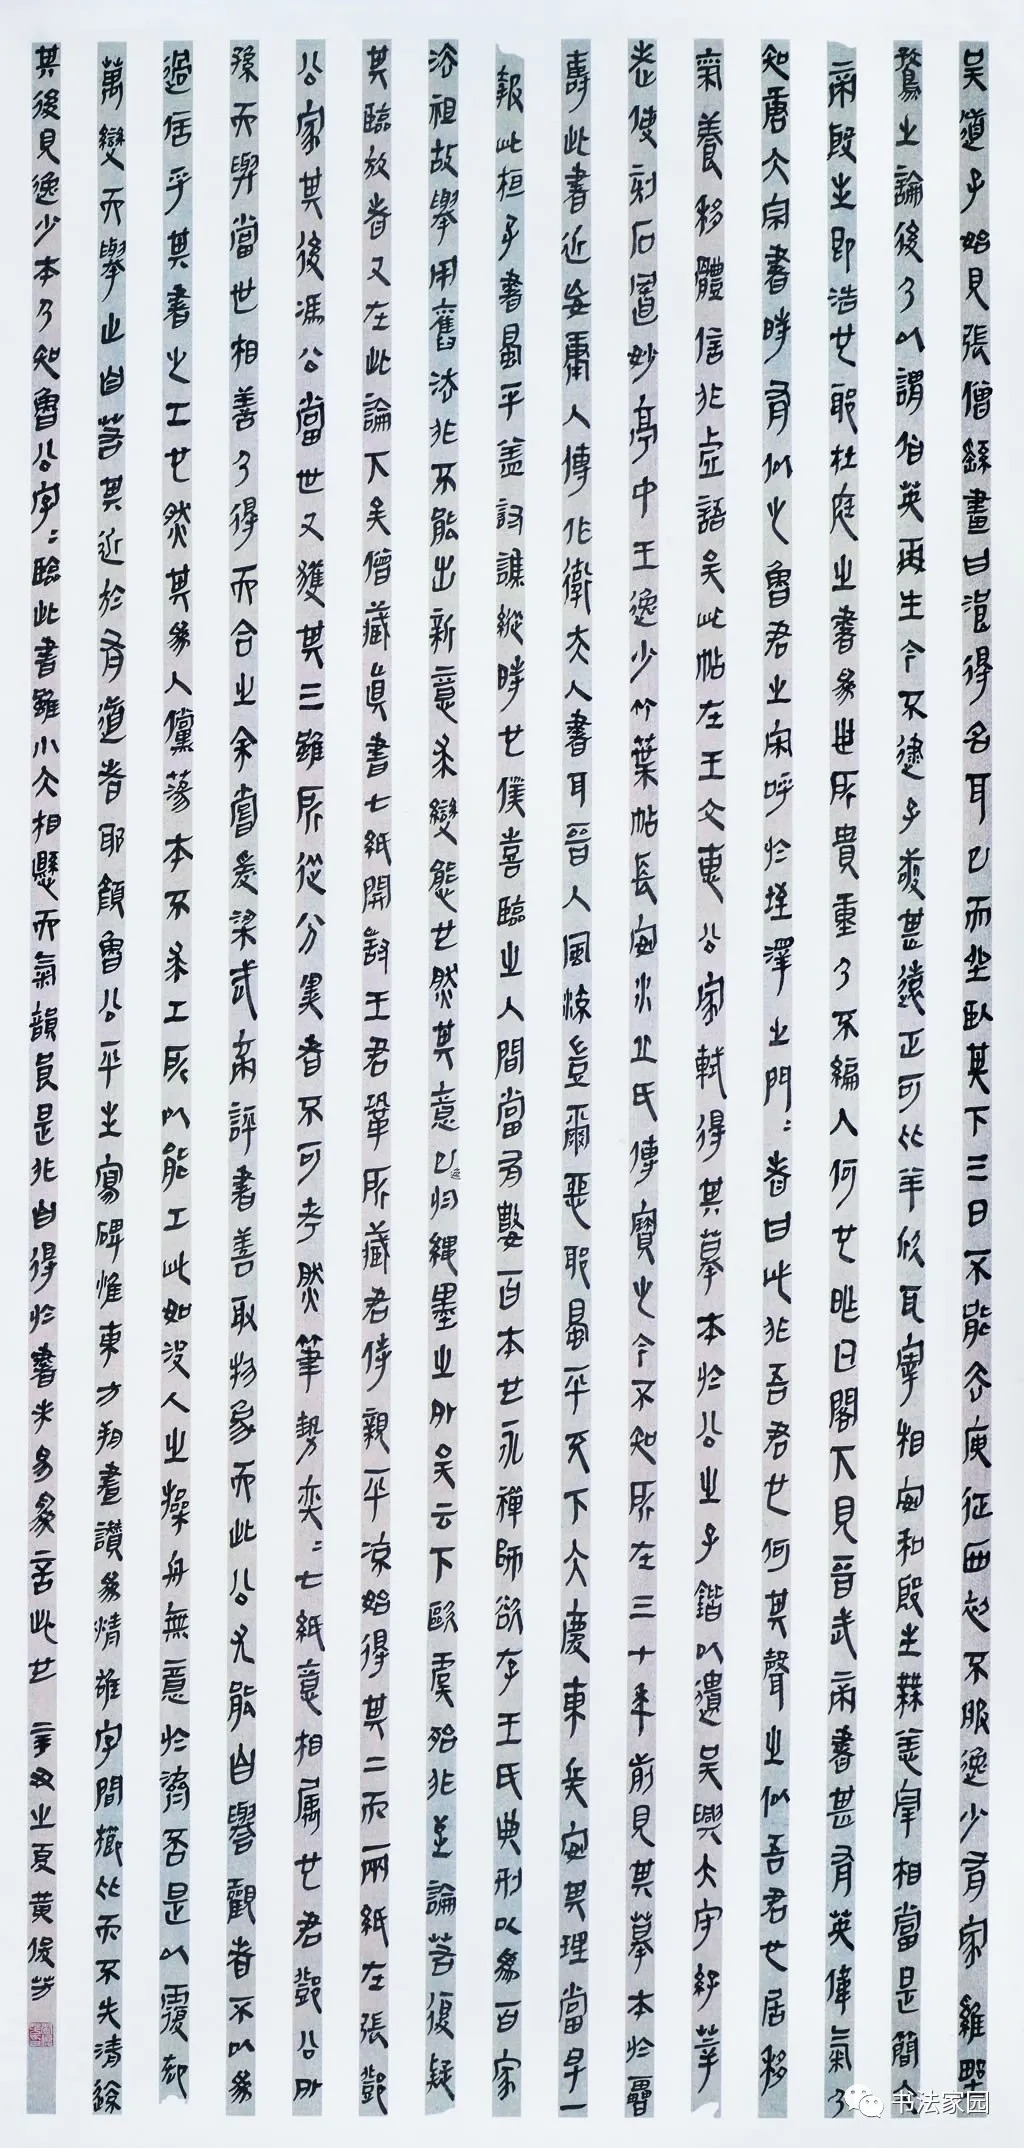 吳道子始見張僧繇畫曰浪得名耳已而坐臥其下三日不能去庾征西初不服逸少有家雞野
鶩之論後乃以謂伯英再生今不逮子敬甚遠正可比羊欣耳宰相安和殷生無恙宰相當是簡文
帝殷生即浩也耶杜庭之書為世所貴重乃不編入何也昨日閣下見晉武帝書甚有英偉氣乃
知唐太宗書時有似之魯君之宋呼於垤澤之門゠者曰此非吾君也何其聲之似吾君也居移
氣養移體信非虛語矣此帖在王文惠公家軾得其摹本於公之子鍇以遺吳興太守孫莘
老使刻石置妙亭中王逸少竹葉帖長安水丘氏傳寶之今不知所在三十年前見其摹本於雷
壽此書近妄庸人傳作衛夫人書耳晉人風涼豈爾惡耶蜀平天下大慶東兵安其理當早一
報此桓子書蜀平蓋討譙縱時也僕喜臨之人間當有數百本也永禪師欲存王氏典刑以為百家
法祖故舉用舊法非不能出新意求變態也然其意已逸於繩墨之外矣云下歐虞殆非至論若復疑
其臨放者又在此論下矣僧藏真書七紙開封王君鞏所藏君侍親平涼始得其二而兩紙在張鄧
公家其後馮公當世又獲其三雖所從分異者不可考然筆勢奕゠七紙意相屬也君鄧公外
孫而與當世相善乃得而合之余嘗愛梁武帝評書善取物象而此公尤能自譽觀者不以為
過信乎其書之工也然其為人儻蕩本不求工所以能工此如沒人之操舟無意於濟否是以覆却
萬變而舉止自若其近於有道者耶顏魯公平生寫碑惟東方朔畫讚為清雄字間櫛比而不失清
其後見逸少本乃知魯公字゠臨此書雖小大相懸而氣韻良是非自得於書未易為言此也 辛丑之夏黃俊
书法家园